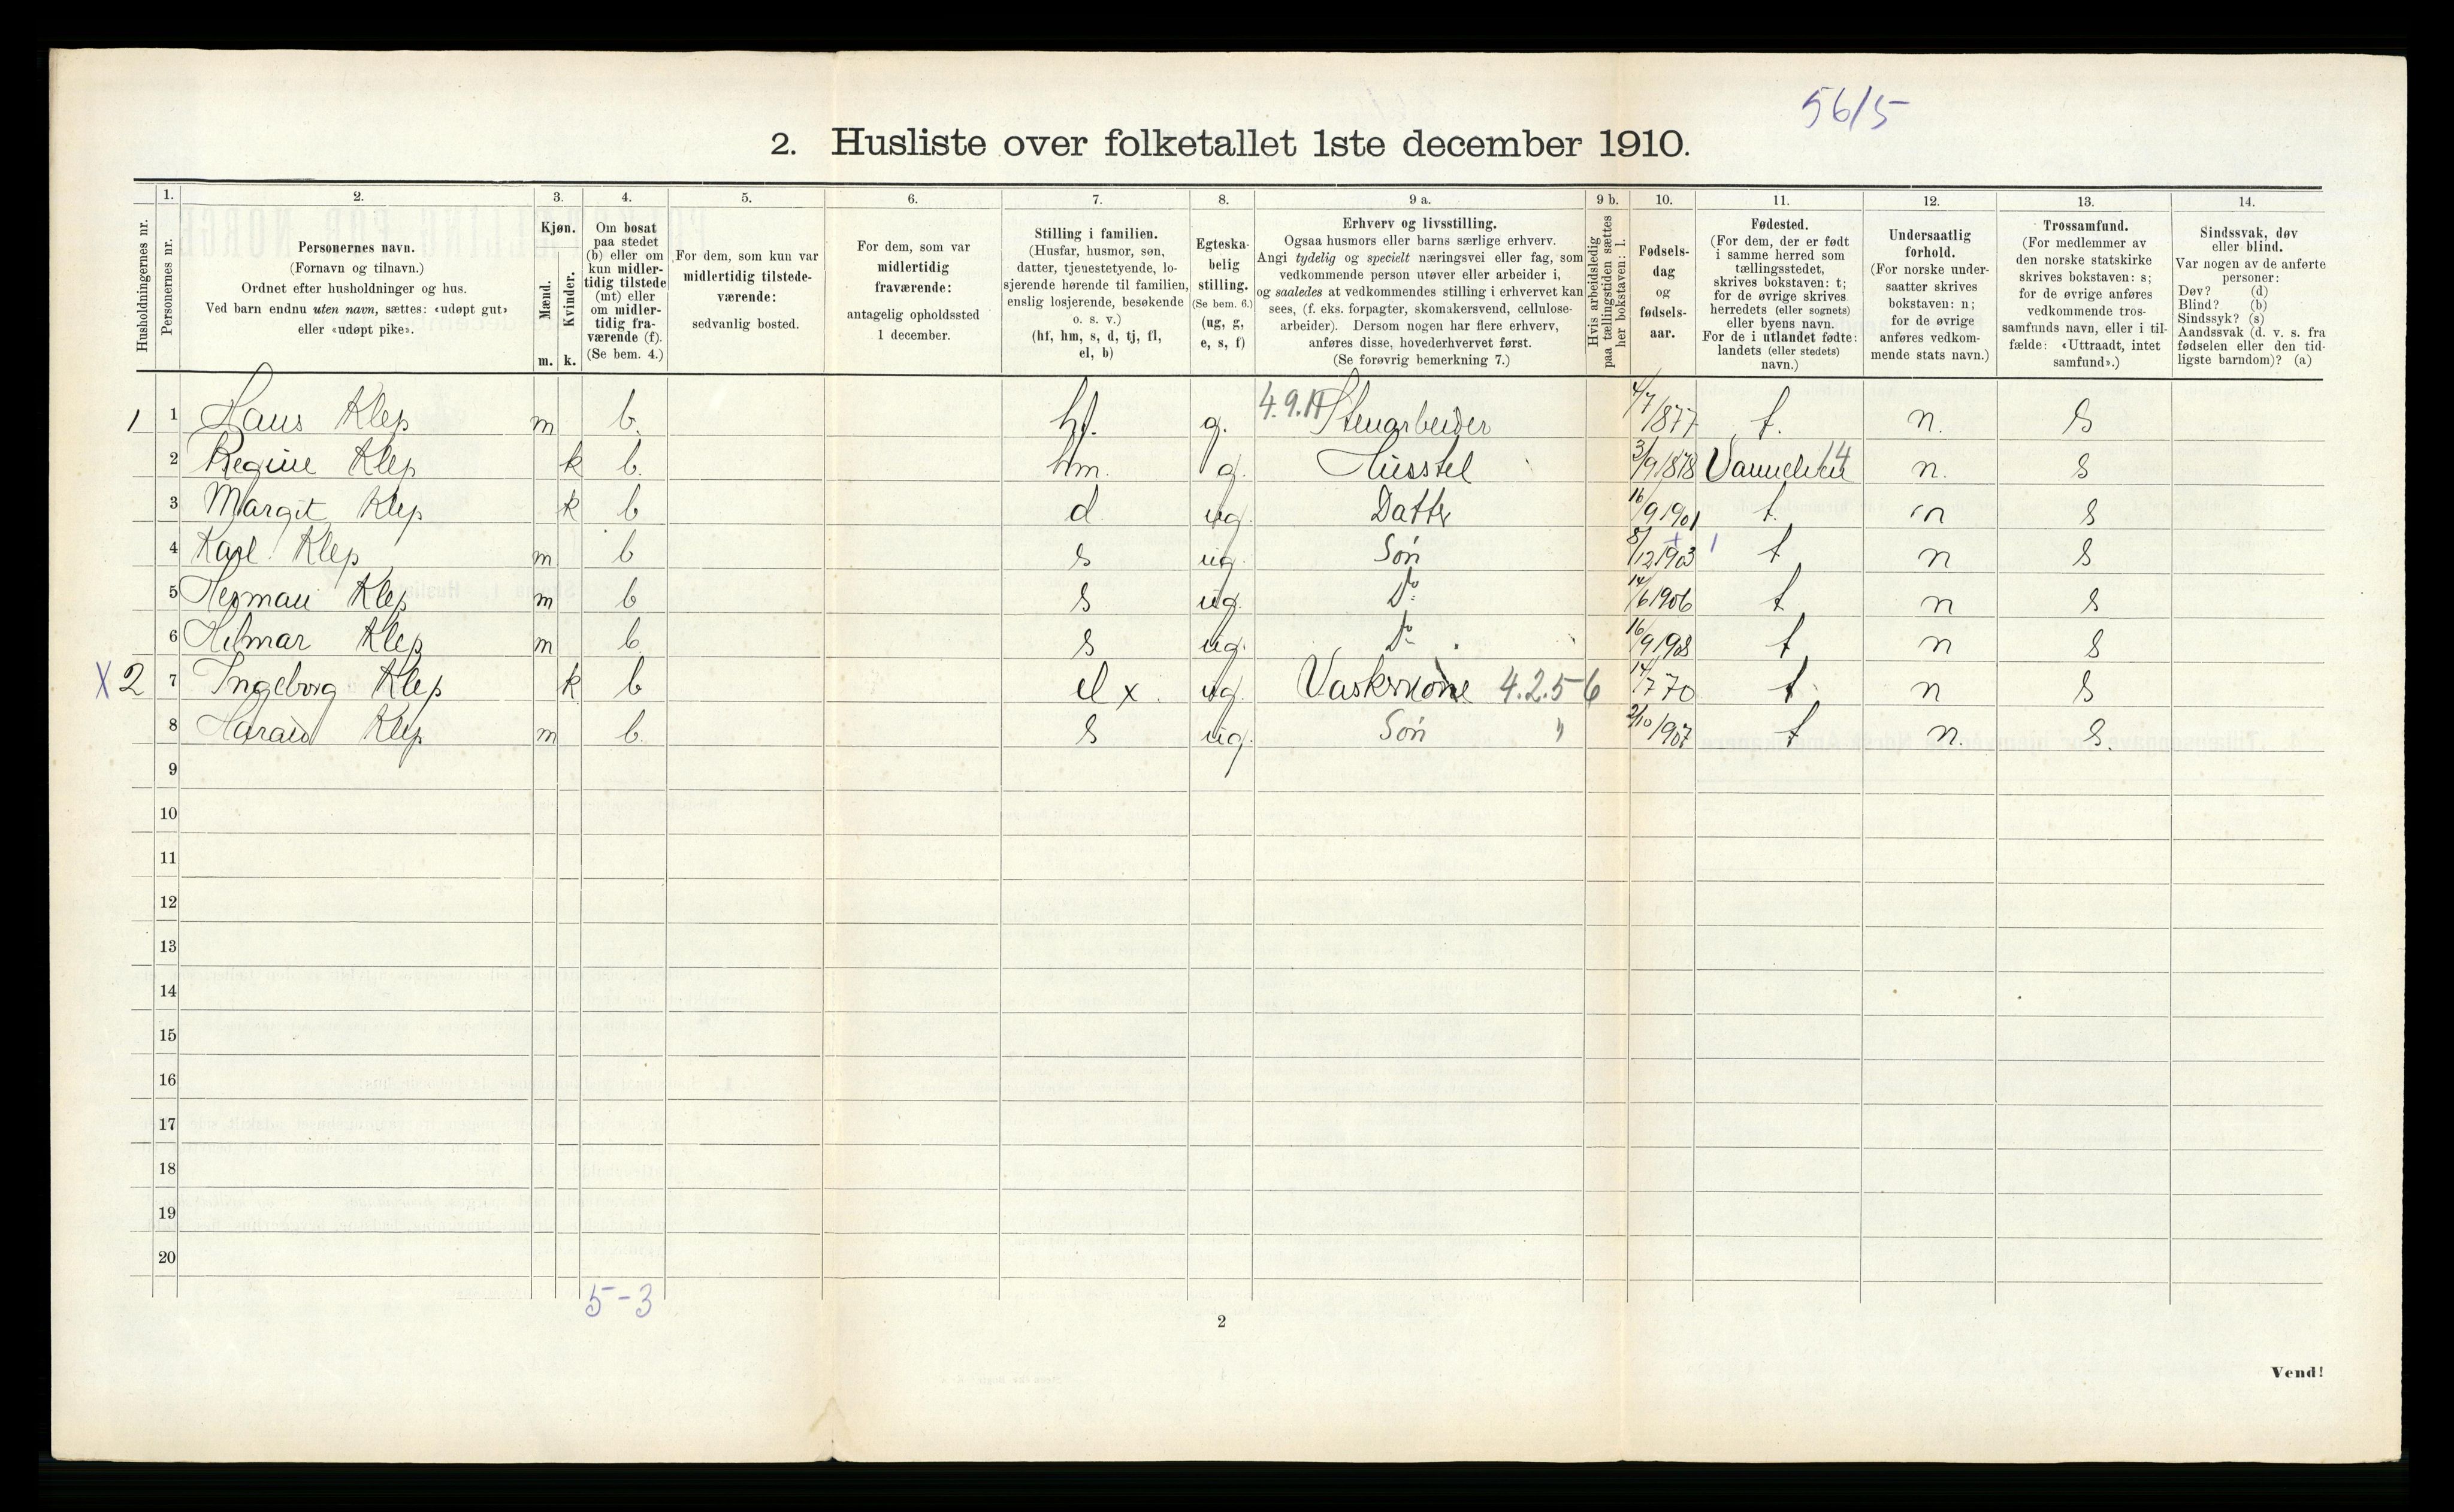 56/5
2. Husliste over folketallet 1ste december 1910.
Husholdningernes nr.
1.
Personernes nr.
2.
Personernes navn.
(Fornavn og tilnavn.)
Ordnet efter husholdninger og hus.
Ved barn endnu uten navn, sættes: «udøpt gut»
eller «udøpt pike».
3.
Kjøn.
Mænd.
Kvinder.
m. k.
4.
Om bosat
paa stedet
(b) eller om
kun midler-
tidig tilstede
(mt) eller
om midler-
tidig fra-
værende (f).
(Se bem. 4.)
5.
For dem, som kun var
midlertidig tilstede-
værende:
sedvanlig bosted.
6.
For dem, som var
midlertidig
fraværende:
antagelig opholdssted
1 december.
7.
Stilling i familien.
(Husfar, husmor, søn,
datter, tjenestetyende, lo-
sjerende hørende til familien,
enslig losjerende, besøkende
o. s. v.)
(hf, hm, s, d, tj, fl,
el, b)
8.
Egteska-
belig
stilling.
(Se bem. 6.)
(ug, g,
e, s, f)
9 a.
Erhverv og livsstilling.
Ogsaa husmors eller barns særlige erhverv.
Angi tydelig og specielt næringsvei eller fag, som
vedkommende person utøver eller arbeider i,
og saaledes at vedkommendes stilling i erhvervet kan
sees, (f. eks. forpagter, skomakersvend, cellulose-
arbeider). Dersom nogen har flere erhverv,
anføres disse, hovederhvervet først.
(Se forøvrig bemerkning 7.)
9 b.
Hvis arbeidsledig
paa tællingstiden sættes
her bokstaven: l.
10.
Fødsels-
dag
og
fødsels-
aar.
11.
Fødested.
(For dem, der er født
i samme herred som
tællingsstedet,
skrives bokstaven: t;
for de øvrige skrives
herredets (eller sognets)
eller byens navn.
For de i utlandet fødte:
landets (eller stedets)
navn.)
12.
Undersaatlig
forhold.
(For norske under-
saatter skrives
bokstaven: n;
for de øvrige
anføres vedkom-
mende stats navn.)
13.
Trossamfund.
(For medlemmer av
den norske statskirke
skrives bokstaven: s;
for de øvrige anføres
vedkommende tros-
samfunds navn, eller i til-
fælde: «Uttraadt, intet
samfund».)
14.
Sindssvak, døv
eller blind.
Var nogen av de anførte
personer:
Døv? (d)
Blind? (b)
Sindssyk? (s)
Aandssvak (d. v. s. fra
fødselen eller den tid-
ligste barndom)? (a)
1 1 Hans Klep m b. hf. g. Stenarbeider 4/7 1877 t. n. s
2 Regine Klep k b. hm. g. Husstel 3/9 1878 14 n. s
3 Margit Klep k b d. ug. Datter 16/9 1901 t. n s
4 Karl Klep m b s ug. Søn 8/12 1903 t n s
5 Herman Klep m b s ug. Do 14/6 1906 t n s
6 Hilmar Klep m b s ug. Do 16/9 1908 t n s
X 2 7 Ingeborg Klep k b el x ug. Vaskerkone 4.2.56 14/7 70 t n s
8 Harald Klep m b. s ug. Søn " 2/10 1907 t n. s.
9
10
11
12
13
14
15
16
17
18
19
20
5-3
2
Vend!